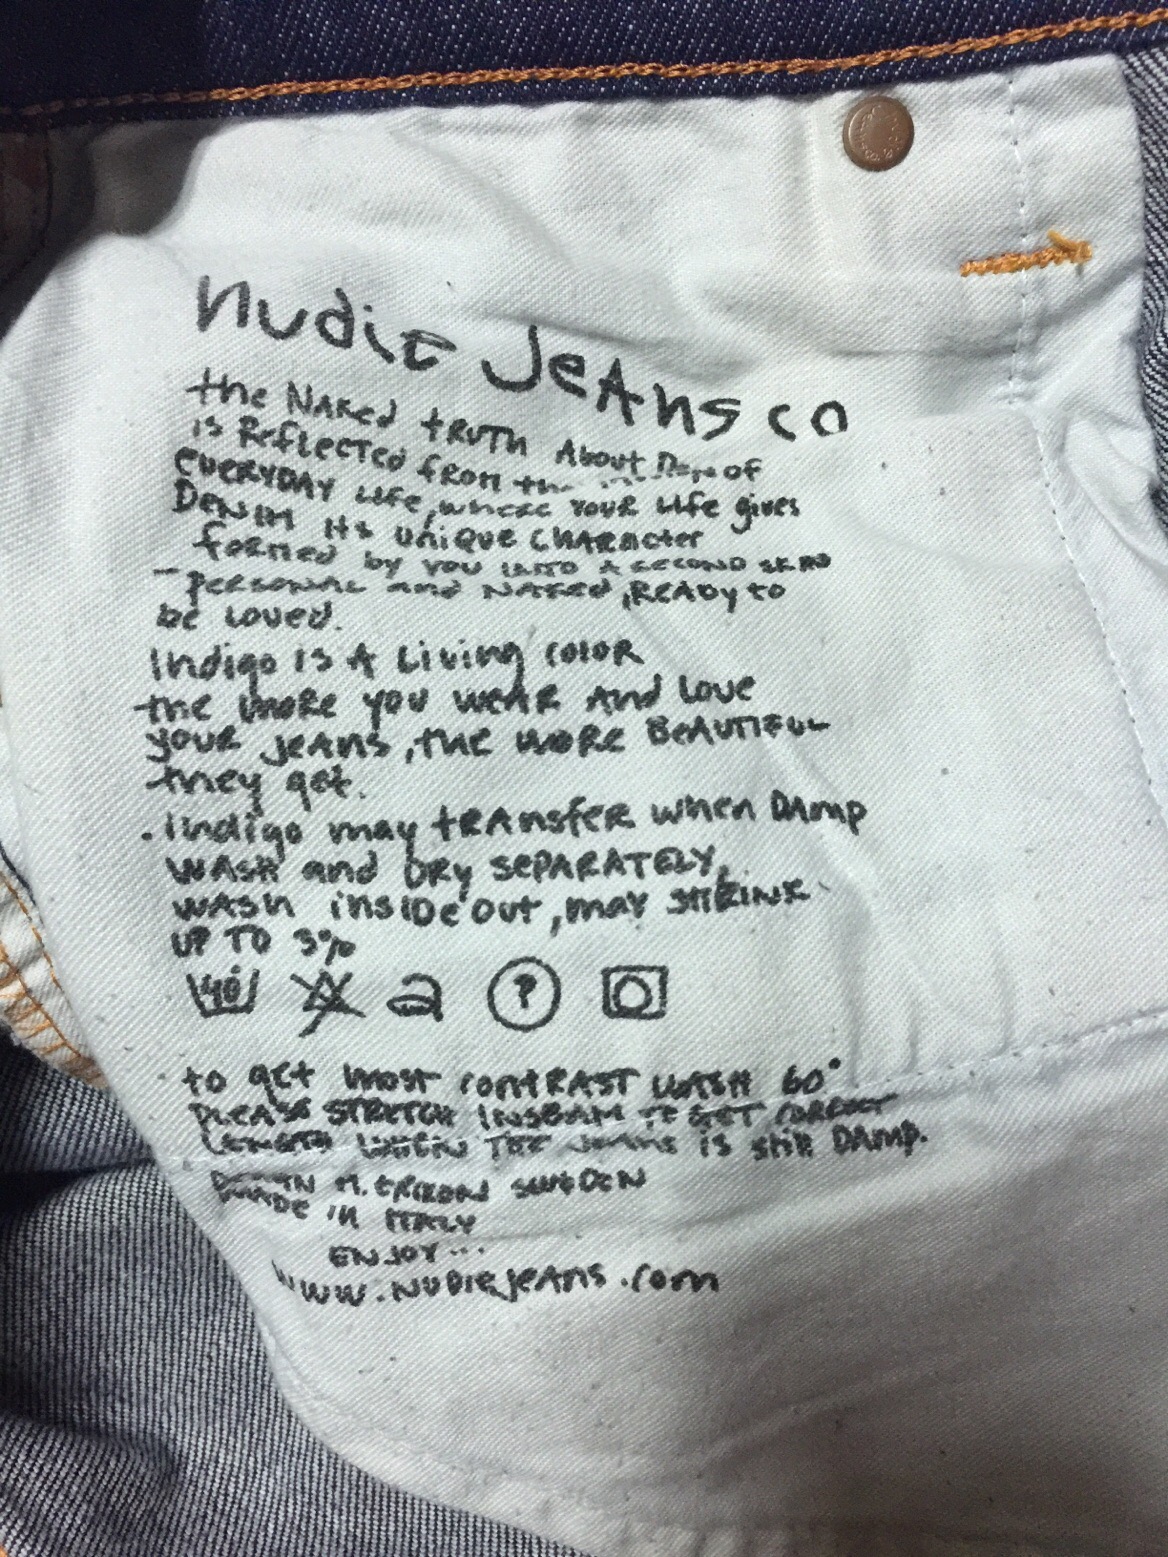 nudie JeAns co
the NAKed tRUTH About
is ReflecTed from of
EVERYDAY Life, where YOUR Life gives
DENIM Its UniQue CHARActer
formed by you INTO A SECOND SKIN
- PERSONAL and NAKED, READy to
be Loved.
Indigo IS A Living COLOR
the more you WEAR And Love
your jeans, the more BeAUTIFUL
they get.
. Indigo may tRAnsfer when DAmp
WASH and DRy SEPARATELY,
WASH insIDe out, may SHRINK
UP TO 3%
40 P
to get most contRAST WASH 60°
PLEASE STRETCH INSEAM TO GET CORRECT
LENGTH WHEN THE Jeans is still DAmp.
DESIGN M. ERIXON SWEDEN
MADE in ITALY
ENJOY...
www.NUDIEjeAns.com